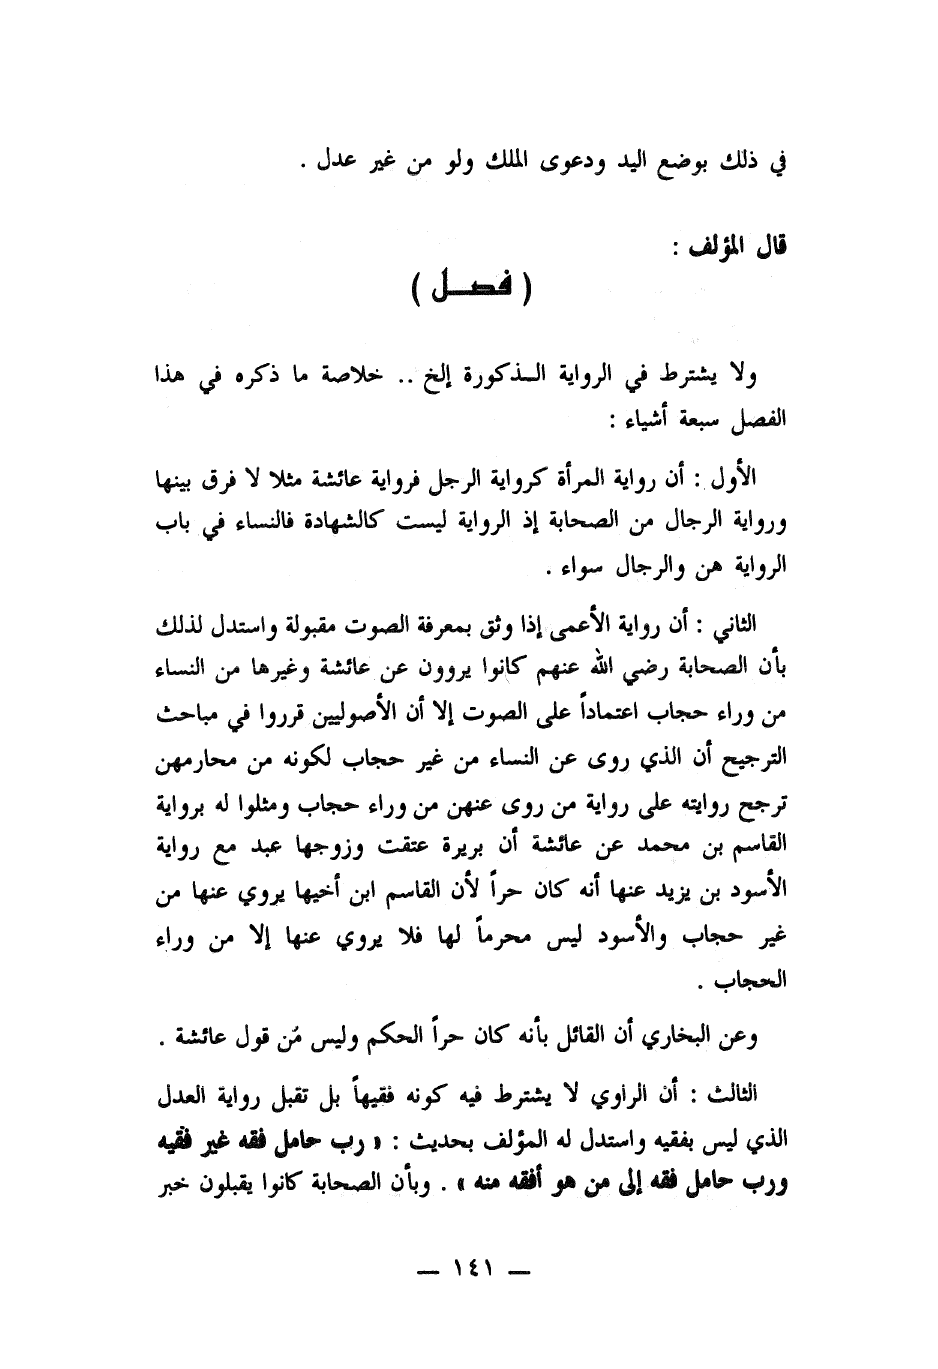 في ذلك بوضع اليد ودعوى الملك ولو من غير عدل .
قال المؤلف :
( فصـــل )
ولا يشترط في الرواية الـذكورة إلخ .. خلاصة ما ذكره في هذا
الفصل سبعة أشياء :
الأول : أن رواية المرأة كرواية الرجل فرواية عائشة مثلا لا فرق بينها
ورواية الرجال من الصحابة إذ الرواية ليست كالشهادة فالنساء في باب
الرواية هن والرجال سواء .
الثاني : أن رواية الأعمى إذا وثق بمعرفة الصوت مقبولة واستدل لذلك
بأن الصحابة رضي الله عنهم كانوا يروون عن عائشة وغيرها من النساء
من وراء حجاب اعتماداً على الصوت إلا أن الأصوليين قرروا في مباحث
الترجيح أن الذي روى عن النساء من غير حجاب لكونه من محارمهن
ترجح روايته على رواية من روى عنهن من وراء حجاب ومثلوا له برواية
القاسم بن محمد عن عائشة أن بريرة عتقت وزوجها عبد مع رواية
الأسود بن يزيد عنها أنه كان حراً لأن القاسم ابن أخيها يروي عنها من
غير حجاب والأسود ليس محرماً لها فلا يروي عنها إلا من وراء
الحجاب .
وعن البخاري أن القائل بأنه كان حراً الحكم وليس مُن قول عائشة .
الثالث : أن الراوي لا يشترط فيه كونه فقيهاً بل تقبل رواية العدل
الذي ليس بفقيه واستدل له المؤلف بحديث : « رب حامل فقه غير فقيه
ورب حامل فقه إلى من هو أفقه منه » . وبأن الصحابة كانوا يقبلون خبر
— ١٤١ —